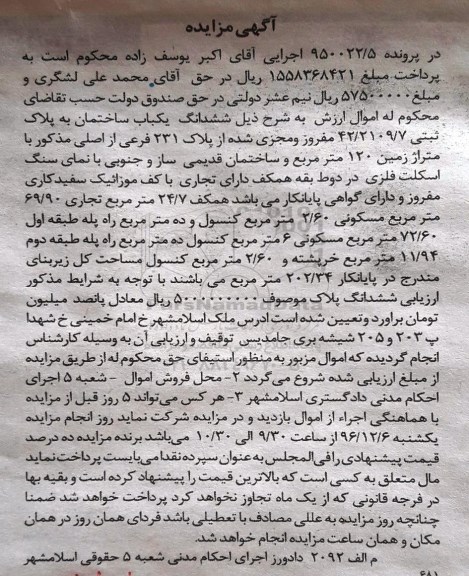 آگهی مزایده
در پرونده ۹۵۰۰۲۲/۵ اجرایی آقای اکبر یوسف زاده محکوم است به
پرداخت مبلغ ۱۵۵۸۳۶۸۴۲۱ ریال در حق آقای محمد علی لشگری و
مبلغ ۵۷۵۰۰۰۰۰ ریال نیم عشر دولتی در حق صندوق دولت حسب تقاضای
محکوم له اموال ارزش به شرح ذیل ششدانگ یکباب ساختمان به پلاک
ثبتی ۴۲/۲۱۰۹/۷ مفروز ومجزی شده از پلاک ۲۳۱ فرعی از اصلی مذکور با
متراژ زمین ۱۲۰ متر مربع و ساختمان قدیمی ساز و جنوبی با نمای سنگ
اسکلت فلزی در دوط بقه همکف دارای تجاری با کف موزائیک سفیدکاری
مفروز و دارای گواهی پایانکار می باشد همکف ۲۴/۷ متر مربع تجاری ۶۹/۹۰
متر مربع مسکونی ۲/۶۰ متر مربع کنسول و ده متر مربع راه پله طبقه اول
۷۲/۶۰ متر مربع مسکونی ۶ متر مربع کنسول ده متر مربع راه پله طبقه دوم
۱۱/۹۴ متر مربع خرپشته و ۲/۶۰ متر مربع کنسول مساحت کل زیربنای
مندرج در پایانکار ۲۰۲/۳۴ متر مربع می باشند با توجه به شرایط مذکور
ارزیابی ششدانگ پلاک موصوف ریال معادل پانصد میلیون
تومان براورد و تعیین شده است ادرس ملک اسلامشهر خ امام خمینی خ شهدا
پ ۲۰۳ و ۲۰۵ شیشه بری جامدپس توقیف و ارزیابی آن به وسیله کارشناس
انجام گردیده که اموال مزبور به منظور استیفای حق محکوم له از طریق مزایده
از مبلغ ارزیابی شده شروع می گردد ۲- محل فروش اموال - شعبه ۵ اجرای
احکام مدنی دادگستری اسلامشهر ۳- هر کس می تواند ۵ روز قبل از مزایده
با هماهنگی اجراء از اموال بازدید و در مزایده شرکت نماید روز انجام مزایده
یکشنبه ۹۶/۱۲/۶ از ساعت ۹/۳۰ الی ۱۰/۳۰ می باشد برنده مزایده ده درصد
قیمت پیشنهادی را فی المجلس به عنوان سپرده نقدا می بایست پرداخت نماید
مال متعلق به کسی است که بالاترین قیمت را پیشنهاد کرده است و بقیه بها
در فرجه قانونی که از یک ماه تجاوز نخواهد کرد پرداخت خواهد شد ضمنا
چنانچه روز مزایده به عللی مصادف با تعطیلی باشد فردای همان روز در همان
مکان و همان ساعت مزایده انجام خواهد شد.
م الف ۲۰۹۲ دادورز اجرای احکام مدنی شعبه ۵ حقوقی اسلامشهر